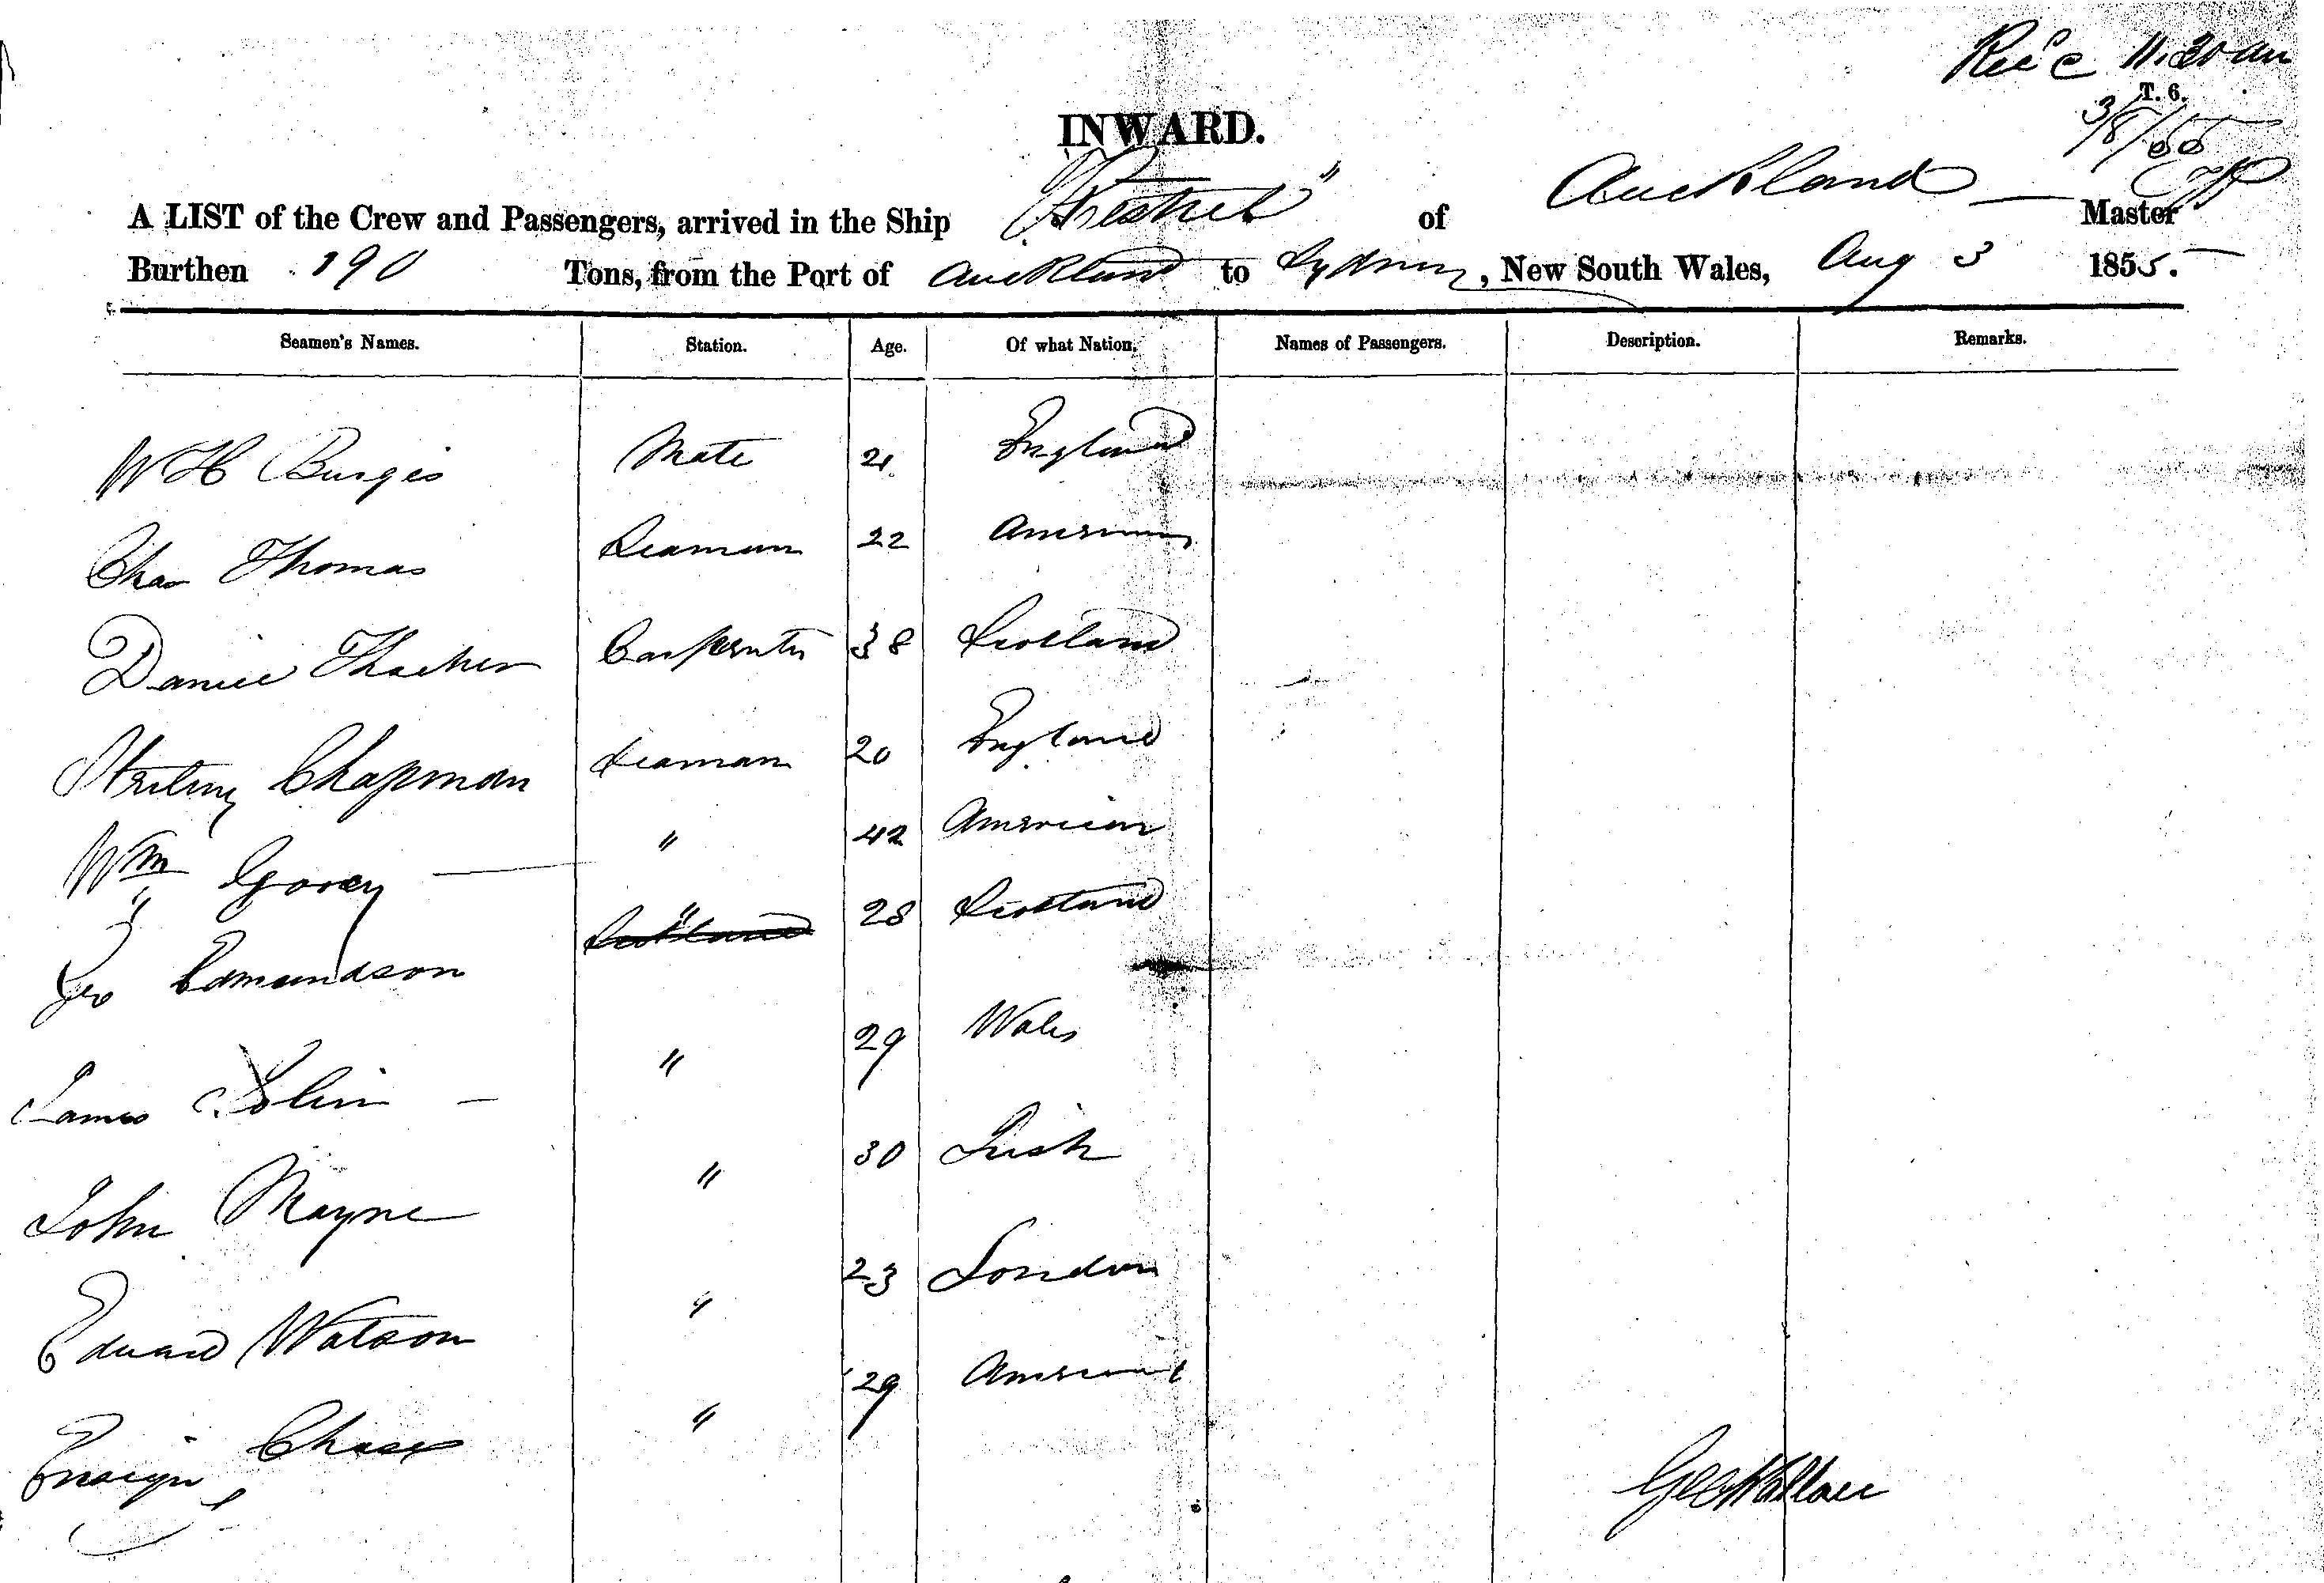 Rec'd 11.30 am
T. 6.
3/8/55
INWARD.
A LIST of the Crew and Passengers, arrived in the Ship "Kestrel" of Auckland — Master
Burthen 190 Tons, from the Port of Auckland to Sydney, New South Wales, Aug 3 1855.
Seamen's Names. Station. Age. Of what Nation. Names of Passengers. Description. Remarks.
W H Burges Mate 21 England
Chas Thomas Seaman 22 American
Daniel Thacker Carpenter 38 Scotland
Chapman Seaman 20 England
Wm Gorey " 42 American
Geo Edmundson Scotland " 28 Scotland
James " 29 Wales
John Mayne " 30 Irish
Edward Watson " 23 London
Ensign Chase " 29 American
Geo Wallace